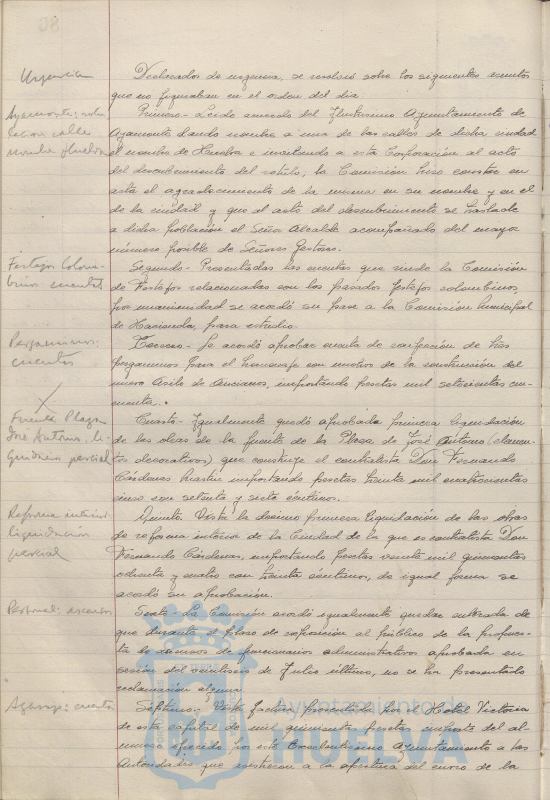 Urgencia
Declarados de urgencia, se resolvió sobre los siguientes asuntos
que no figuraban en el orden del día.
Ayamonte: solu
calle
nombre Huelva
Primero.- Leído acuerdo del Ilustrísimo Ayuntamiento de
Ayamonte dando nombre a una de las calles de dicha ciudad
el nombre de Huelva e invitando a esta Corporación al acto
del descubrimiento del rótulo, la Comisión hizo constar en
acta el agradecimiento de la misma en su nombre y en el
de la ciudad y que al acto del descubrimiento se traslade
a dicha población el Señor Alcalde acompañado del mayor
número posible de Señores Gestores.
Festejos Colom-
binos cuentas
Segundo.- Presentadas las cuentas que rinde la Comisión
de Festejos relacionadas con los pasados festejos colombinos
por unanimidad se acordó su pase a la Comisión Municipal
de Hacienda, para estudio.
Pergaminos:
cuentas
Tercero.- Se acordó aprobar cuenta de confección de tres
pergaminos para el homenaje con motivo de la construcción del
nuevo Asilo de Ancianos, importando pesetas mil setecientas cin-
cuenta.
Fuente Plaza
José Antonio, li-
quidación parcial
Cuarto.- Igualmente quedó aprobada primera liquidación
de las obras de la fuente de la Plaza de José Antonio (elemen-
tos decorativos) que construye el contratista Don Fernando
Cárdenas importando pesetas treinta mil cuatrocientas
cinco con setenta y siete céntimos.
Reforma interior
liquidación
parcial
Quinto.- Vista la décimo primera liquidación de las obras
de reforma interior de la Ciudad de la que es contratista Don
Fernando Cárdenas, importando pesetas veinte mil quinientas
ochenta y cuatro con treinta céntimos, de igual forma se
acordó su aprobación.
Personal: ascensos
Sexto.- La Comisión acordó igualmente quedar enterada de
que durante el plazo de exposición al público de la propues-
ta de ascensos de funcionarios administrativos aprobada en
sesión del veintiseis de Julio último, no se ha presentado
reclamación alguna.
Agasajo: cuenta
Séptimo.- Vista factura presentada por el Hotel Victoria
de esta capital de mil quinientas pesetas importe del al-
muerzo ofrecido por este Excelentísimo Ayuntamiento a las
Autoridades que asistieron a la apertura del curso de la
Ayuntamiento de
HUELVA